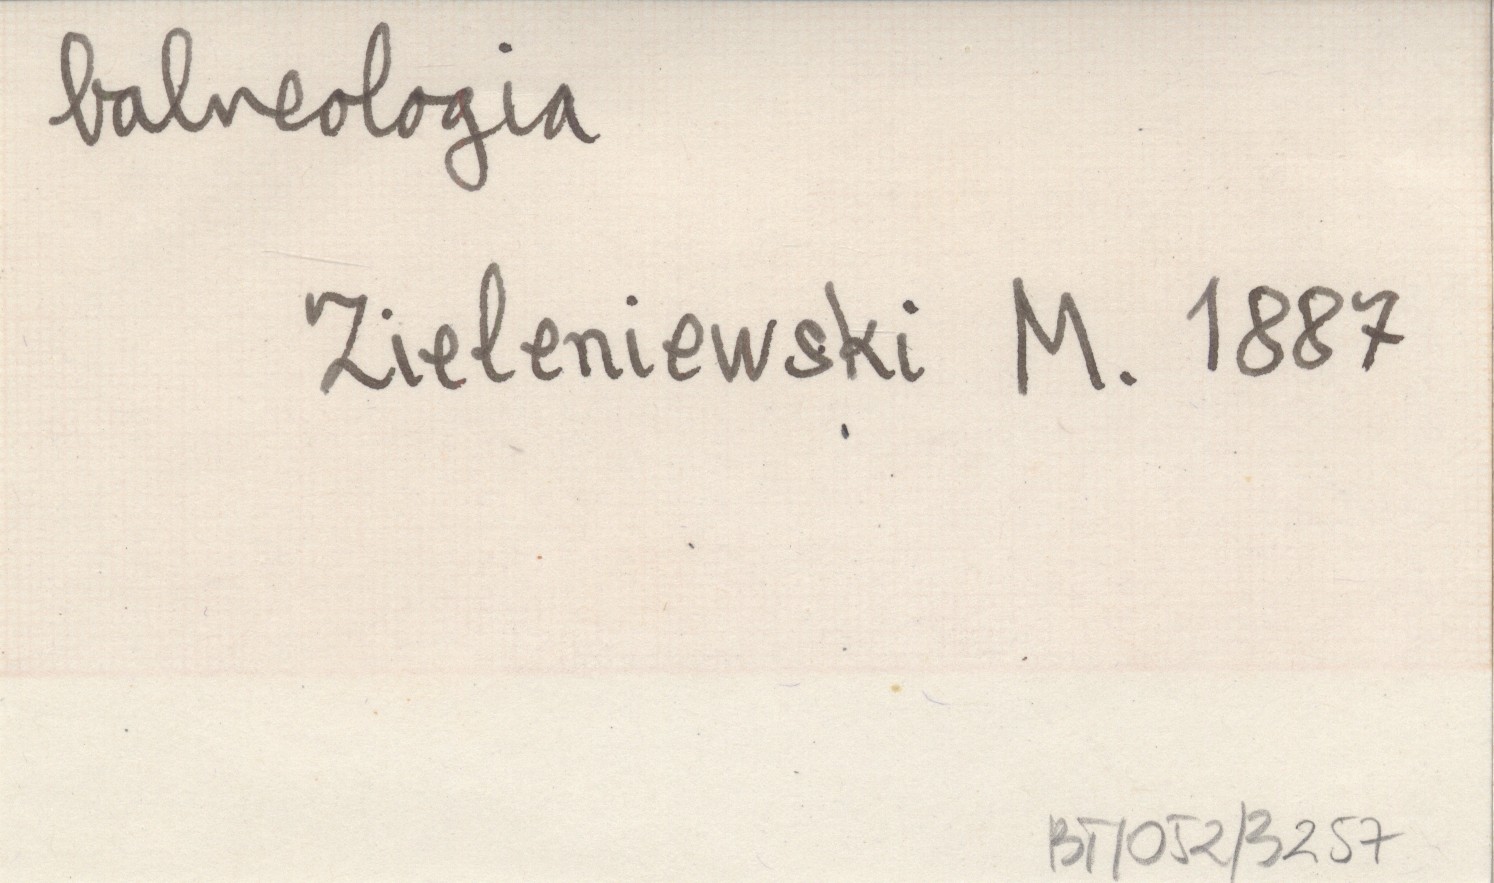 balneologia
Zieleniewski M. 1887
BT/052/3257